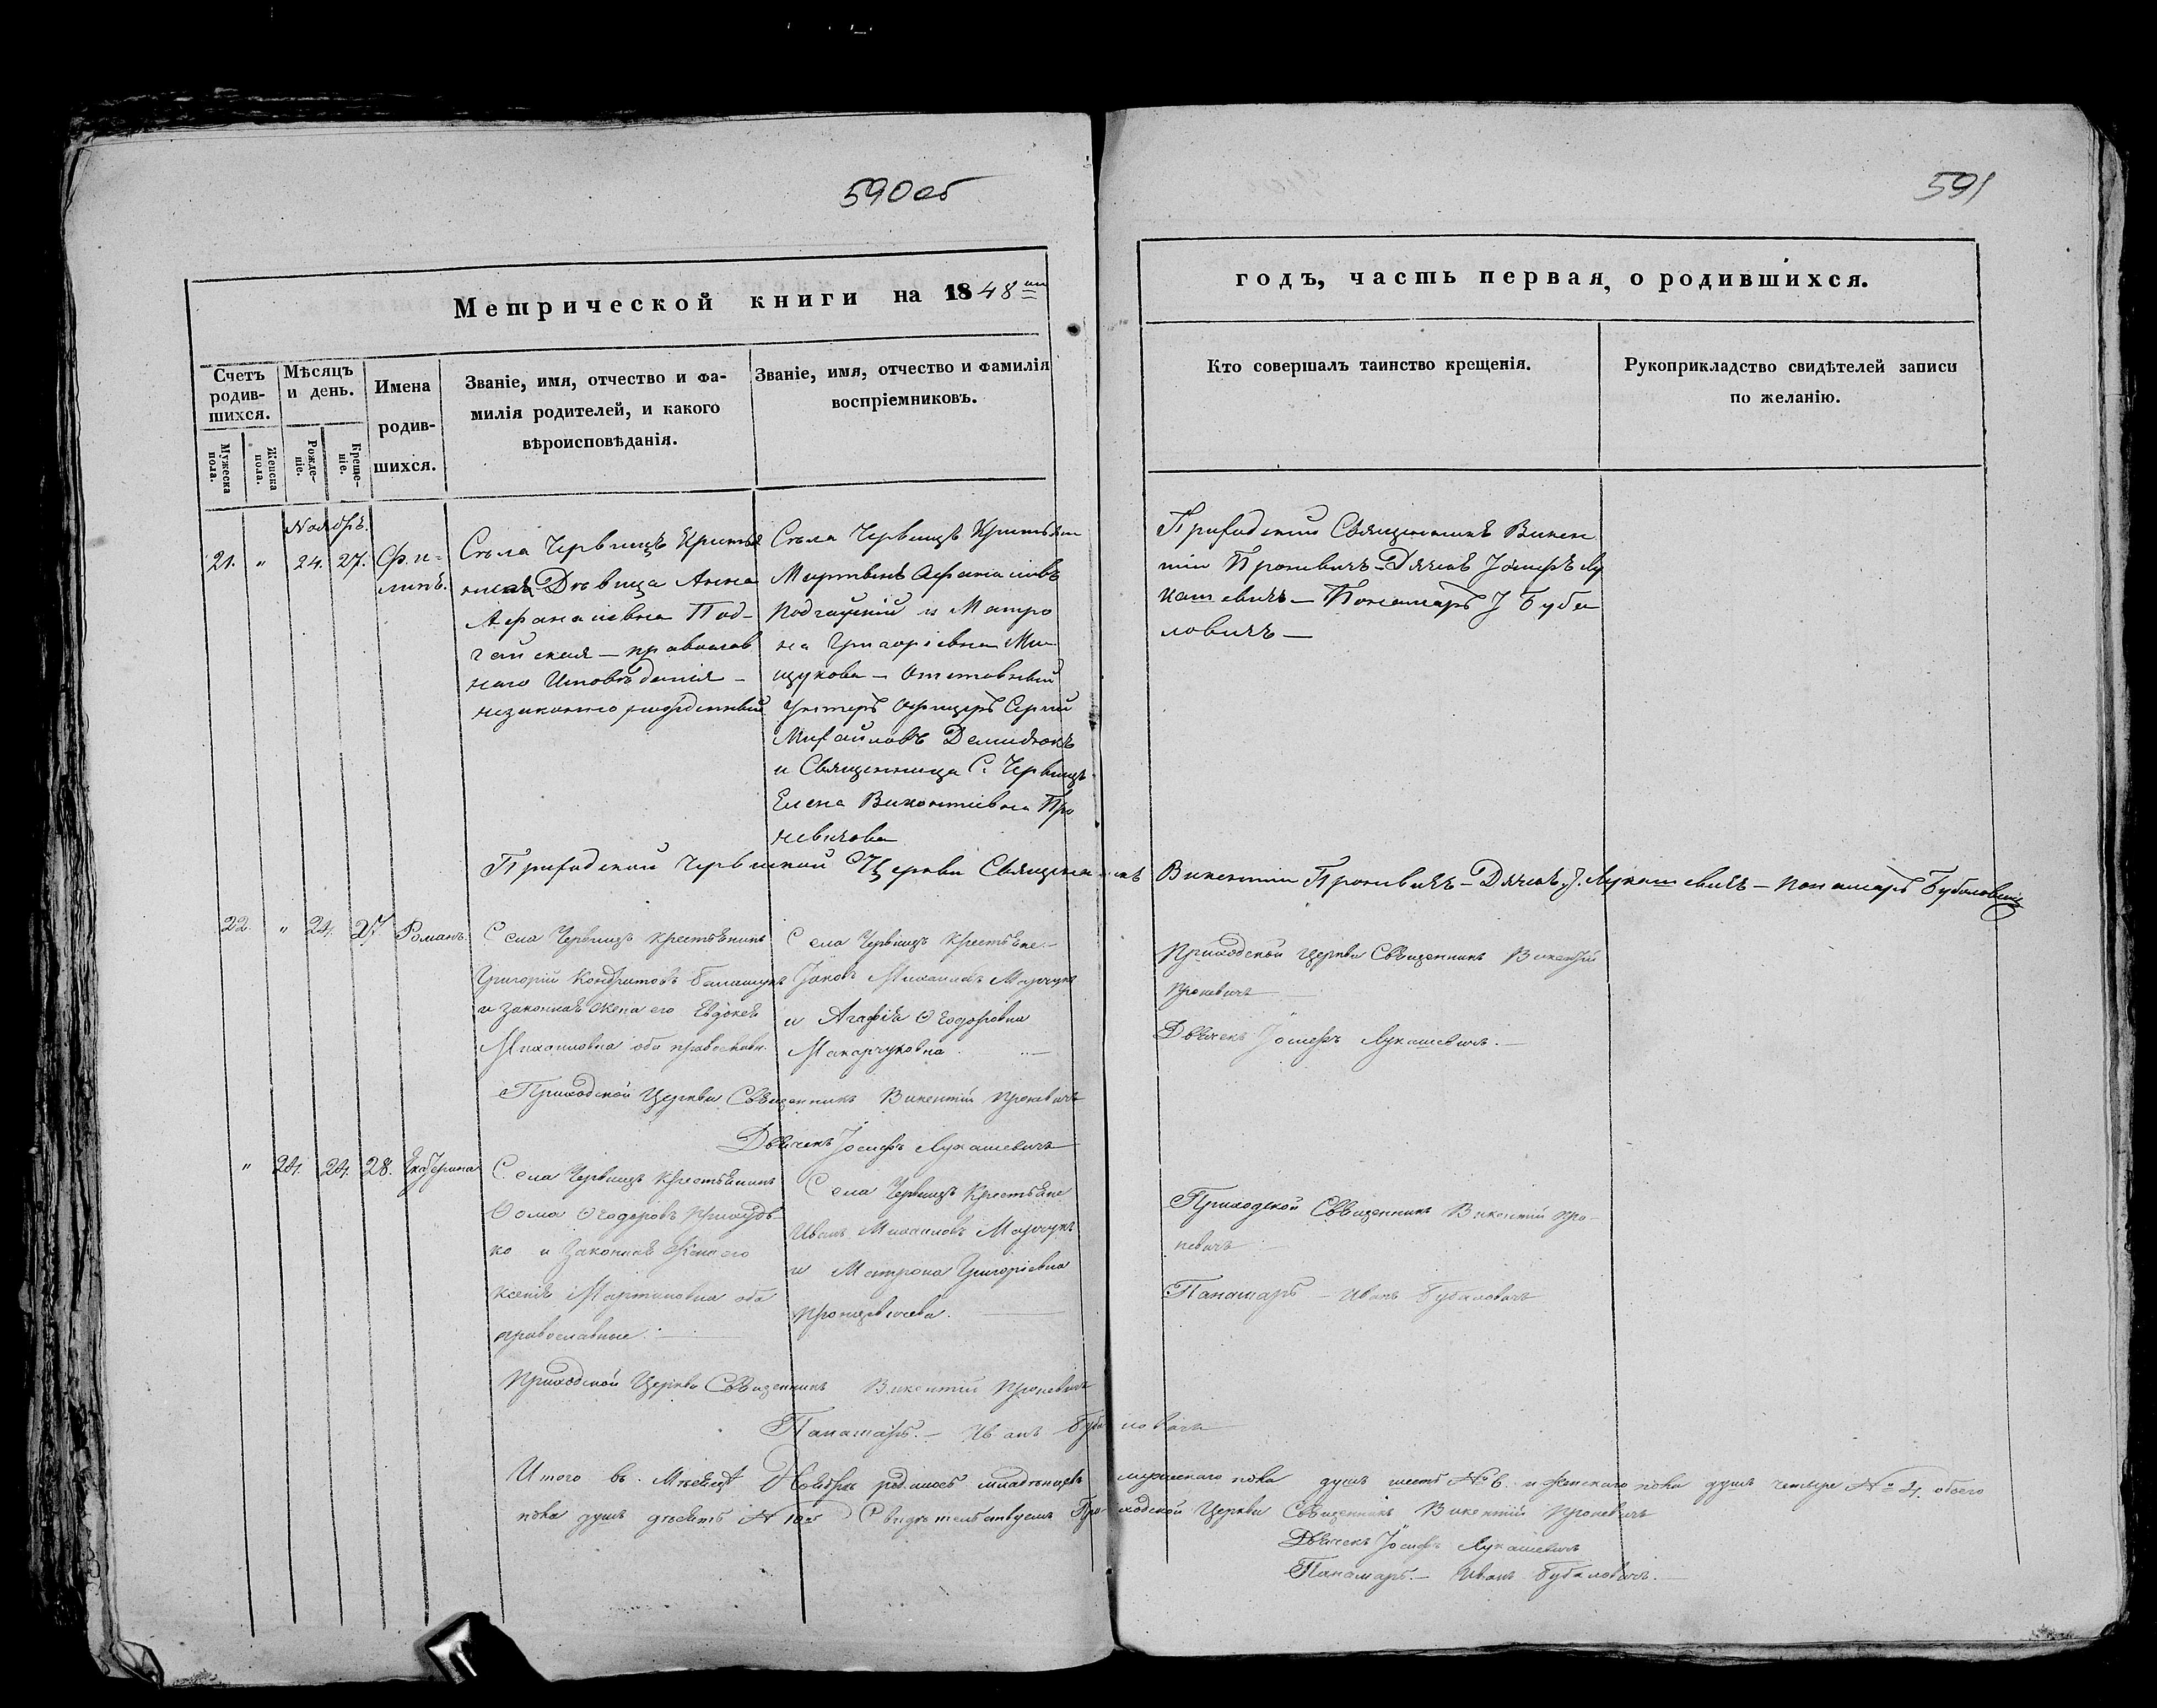 590 об
591
Метрической книги на 1848ій
годъ, часть первая, о родившихся.
Счетъ родив-шихся.
Мѣсяцъ и день.
Имена родив-шихся.
Званіе, имя, отчество и фа-
милія родителей, и какого
вѣроисповѣданія.
Званіе, имя, отчество и фамилія
воспріемниковъ.
Кто совершалъ таинство крещенія.
Рукоприкладство свидѣтелей записи
по желанію.
Мужеска пола.
Женска пола.
Рожде-ніе.
Креще-ніе.
Ноябрь.
21. " 24. 27.
Села Червищъ Кристья
Дѣвица Анна
Афанасіевна Под-
гайская — православ
наго Исповѣданія —
незаконно рожденный
Села Червищъ
Мартынъ Афанасіевъ
Подгайскій и Матро
на Григоріевна Ми
щукова — Отставный
Унтеръ Офицеръ Сергій
Михайловъ Демидюкъ
и Священница С. Червищъ
Елена Викентіевна Про
невичова
Приходскій Священникъ Викен
тій Проневичъ — Дячокъ Іосифъ Лу
кашевичъ — Пономарь І Буба
ловичъ —
Приходской Червиской Церкви Священникъ Викентій Проневичъ — Дячокъ І. Лукашевичъ — Пономарь Бубаловичъ
22. " 24. 27. Романъ.
Села Червищъ Крестьянинъ
Григорій Кондратовъ
и законная Жена его Евдокея
Михаиловна оба православн.
Села Червищъ Крестьяне. —
Яковъ Михаиловъ Марчукъ
и Агафія Ѳеодоровна
Макарчуковна. —
Приходской Церкви Священникъ Викентій
Проневичъ
Дьячекъ Іосифъ Лукашевичъ. —
Приходской Церкви Священникъ Викентій Проневичъ
Дьячекъ Іосифъ Лукашевичъ
" 24. 24. 28. Екатерина
Села Червищъ Крестьянинъ
Ѳома Ѳеодоровъ Приходь-
ко и Законная Жена его
Ксенія Мартиновна оба
православные. —
Села Червищъ Крестьяне
Иванъ Михаиловъ Марчукъ
и Матрона Григоріевна
Приходской Священникъ Викентій Про-
невичъ
Панамарь — Иванъ Бубаловичъ
Приходской Церкви Священникъ Викентій Проневичъ
Панамарь. — Иванъ Бубаловичъ
Итого въ Мѣсяцѣ Ноябрѣ родилось младенцевъ мужескаго пола душъ шесть № 6. и женскаго пола душъ четыре № 4. обоего
пола душъ десять № 10. Свидѣтельствуемъ Приходской Церкви Священникъ Викентій Проневичъ
Дьячекъ Іосифъ Лукашевичъ
Панамарь. — Иванъ Бубаловичъ. —